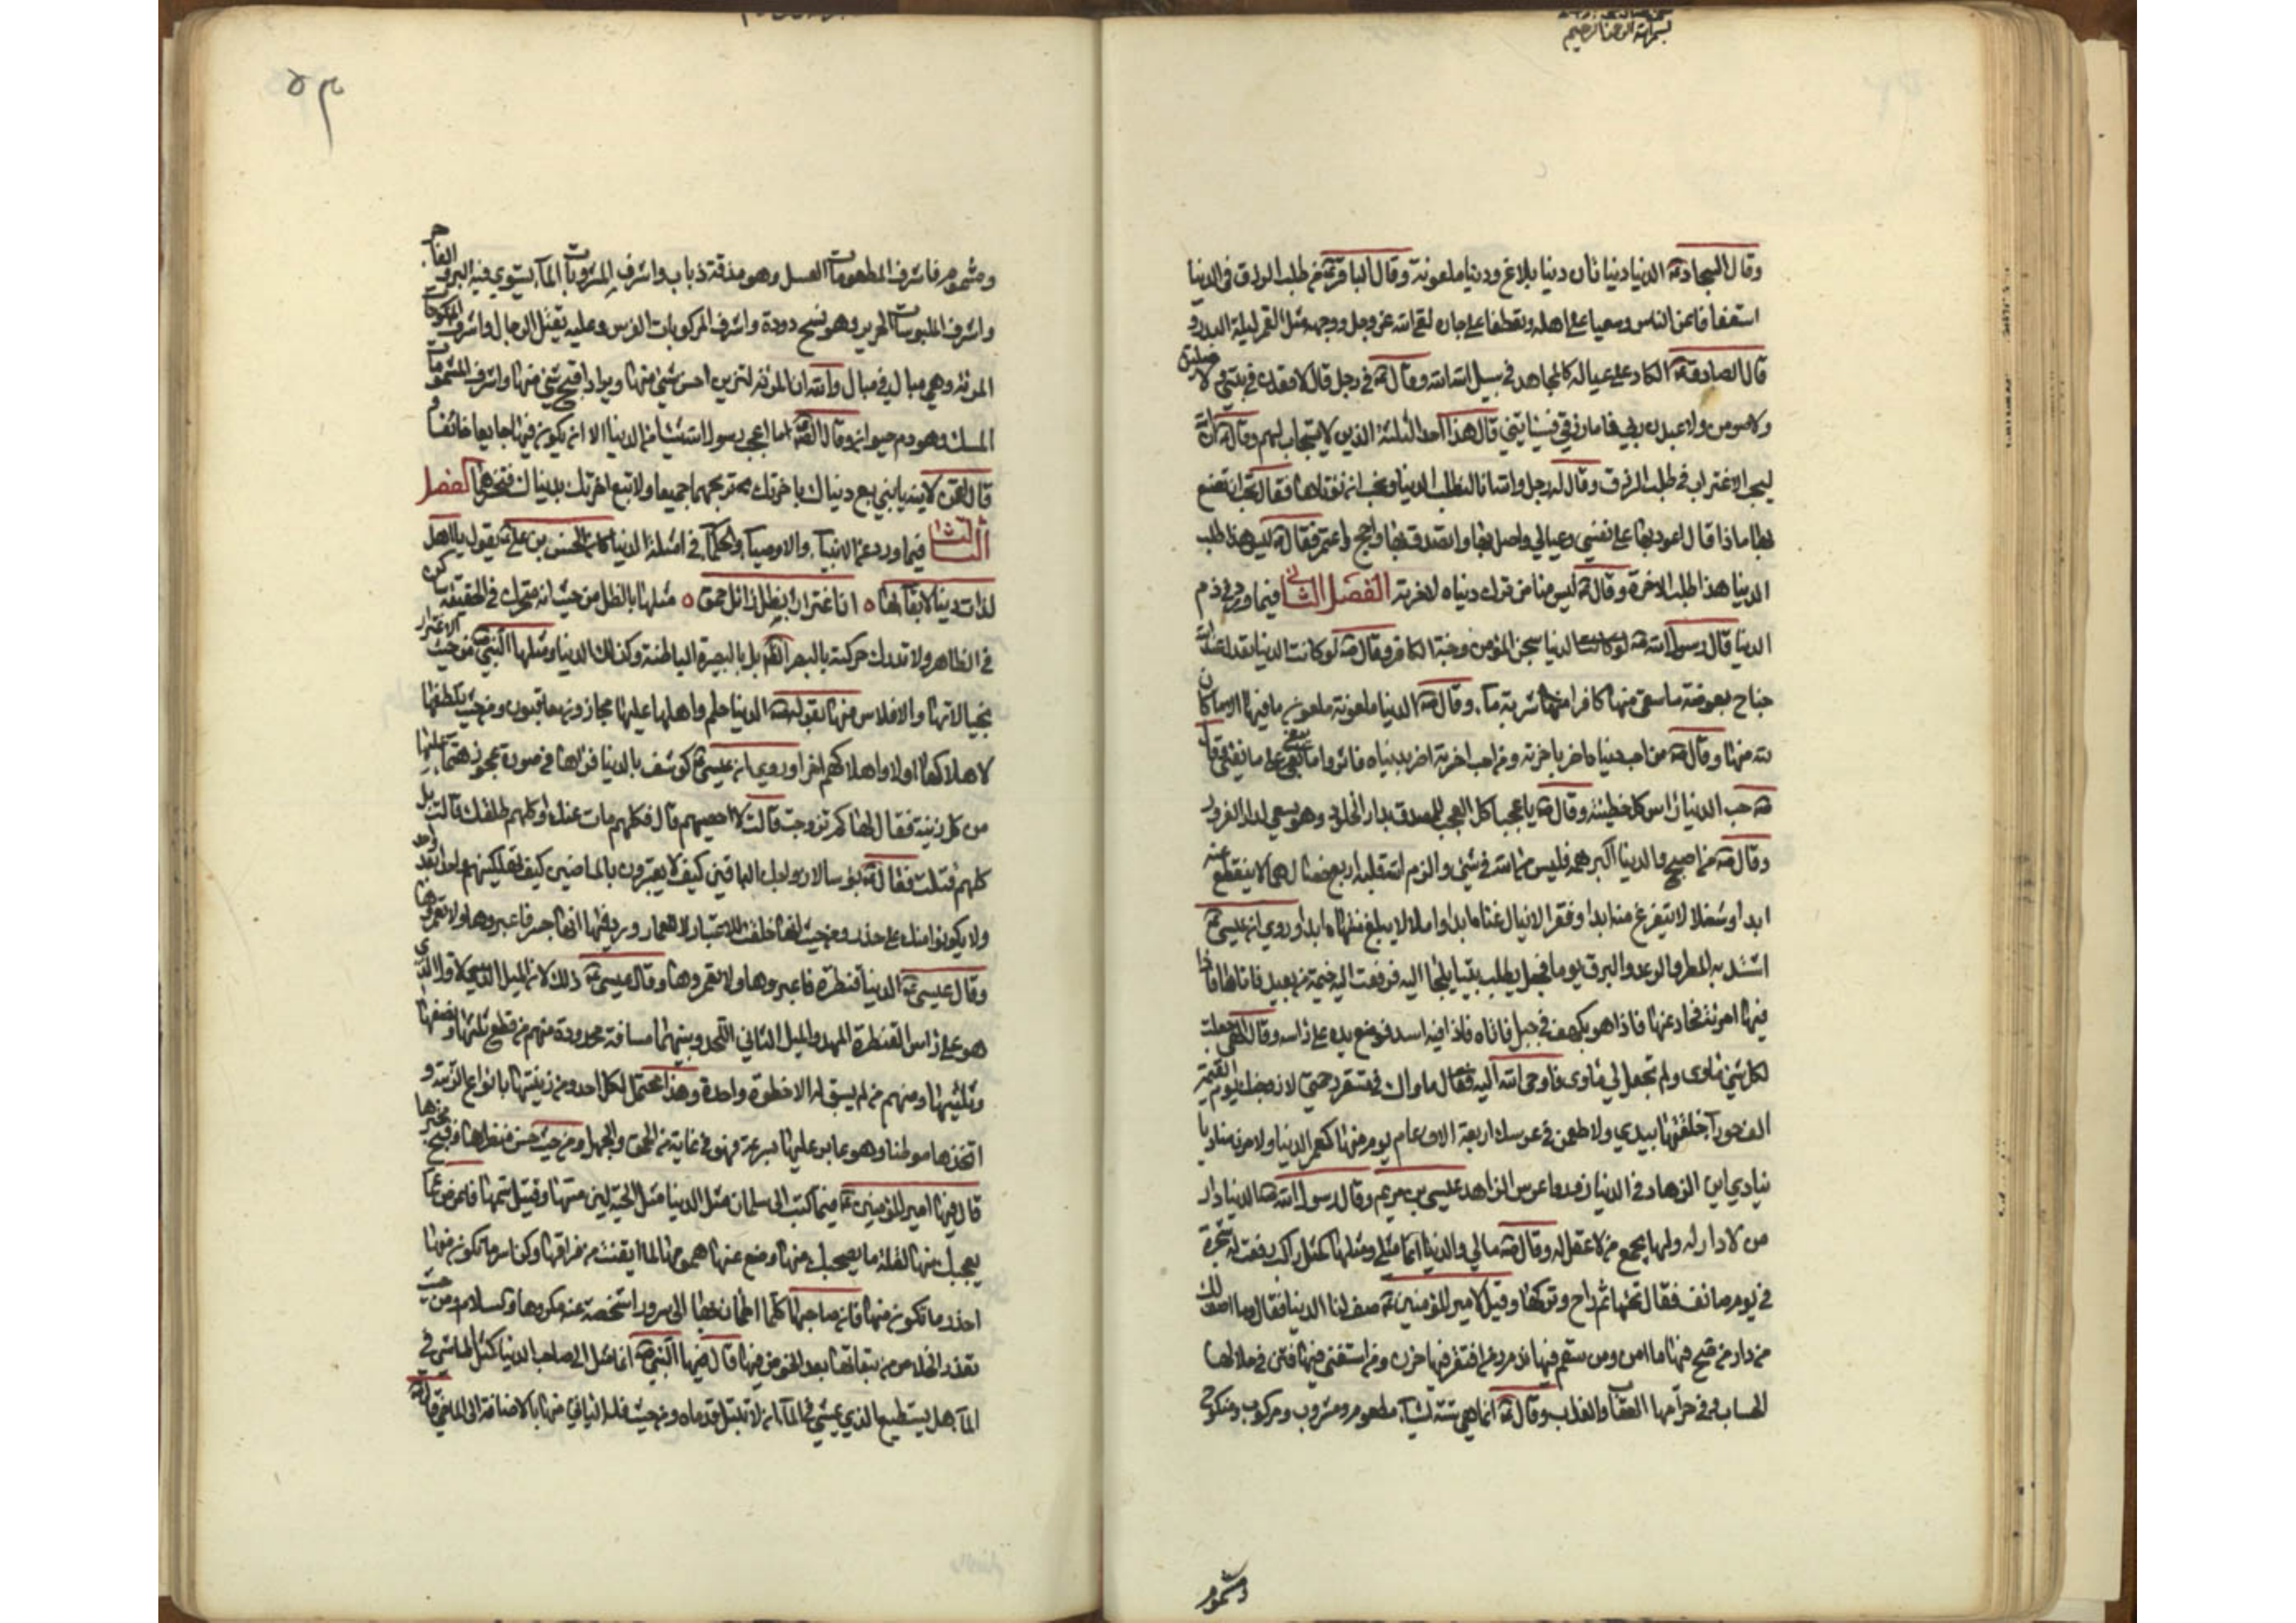 بسم الله الرحمن الرحيم
وقال السجاد ع الدنيا دنيا ان دنيا بلاغ ودنيا ملعونة وقال الباقر ع من طلب الرزق في الدنيا
استعفافا عن الناس وسعيا على اهله وتعطفا على جاره لقي الله عز وجل ووجهه مثل القمر ليلة البدر و
قال الصادق ع الكاد على عياله كالمجاهد في سبيل الله وقال ع في رجل قال لاقعدن في بيتي ولاصلين
ولاصومن ولاعبدن ربي فاما رزقي فسياتيني قال هذا احد الثلثة الذين لا يستجاب لهم وقال ع ان الله
ليحب الاغتراب في طلب الرزق وقال له رجل والله انا لنطلب الدنيا ونحب ان نؤتاها فقال تحب ان تصنع
بها ماذا قال اعود بها على نفسي وعيالي واصل بها واتصدق بها واحج واعتمر فقال ع ليس هذا طلب
الدنيا هذا طلب الاخرة وقال ع ليس منا من ترك دنياه لاخرته الفصل الثاني فيما ورد في ذم
الدنيا قال رسول الله ص الدنيا سجن المؤمن وجنة الكافر وقال ص لو كانت الدنيا تعدل عند الله
جناح بعوضة ما سقى منها كافرا منها شربة ماء وقال ص الدنيا ملعونة ملعون ما فيها الا ما كان
لله منها وقال ص من احب دنياه اضر باخرته ومن احب اخرته اضر بدنياه فاثروا ما يبقى على ما يفنى وقال
ص حب الدنيا راس كل خطيئة وقال ص يا عجبا كل العجب للمصدق بدار الخلود وهو يسعى لدار الغرور
وقال ص من اصبح والدنيا اكبر همه فليس من الله في شيء والزم الله قلبه اربع خصال هما لا ينقطع عنه
ابدا وشغلا لا يتفرغ منه ابدا وفقرا لا ينال غناه ابدا واملا لا يبلغ منتهاه ابدا وروي ان عيسى ع
اشتد به المطر والرعد والبرق يوما فجعل يطلب بيتا يلجا اليه فرفعت اليه خيمة من بعيد فاتاها فاذا
فيها امرئة فحاد عنها فاذا هو بكهف في جبل فاتاه فاذا فيه اسد فوضع يده على راسه وقال الهي جعلت
لكل شيء ماوى ولم تجعل لي ماوى فاوحى الله اليه فقال ماواك في مستقر رحمتي لازوجنك يوم القيمة
الف حوراء خلقتها بيدي ولاطعمن في عرسك اربعة الاف عام يوم منها كعمر الدنيا ولامرن مناديا
ينادي اين الزهاد في الدنيا زوروا عرس الزاهد عيسى بن مريم وقال رسول الله ص الدنيا دار
من لا دار له ولها يجمع من لا عقل له وقال ص مالي والدنيا انما مثلي ومثلها كمثل راكب رفعت له شجرة
في يوم صائف فقال تحتها ثم راح وتركها وقيل لامير المؤمنين ع صف لنا الدنيا فقال وما اصف لك
من دار من صح فيها ما امن ومن سقم فيها ندم ومن افتقر فيها حزن ومن استغنى فيها فتن في حلالها
الحساب وفي حرامها العقاب والعذاب وقال ع انما هي ستة اشياء مطعوم ومشروب ومركوب ومنكوح
ومشموم
٥٣
ومشموم فاشرف المطعومات العسل وهو مذقة ذباب واشرف المشروبات الماء يستوي فيه البر والفاجر
واشرف الملبوسات الحرير وهو نسج دودة واشرف المركوبات الفرس وعليه يقتل الرجال واشرف المنكوحات
المرئة وهي مبال في مبال والله ان المرئة لتزين احسن شيء منها ويراد اقبح شيء منها واشرف المشمومات
المسك وهو دم حيوان وقال ما اعجب رسول الله شيئا من الدنيا الا ان يكون فيها جايعا خائفا و
قال لقمن لابنه يا بني بع دنياك باخرتك تربحهما جميعا ولا تبع اخرتك بدنياك فتخسرهما الفصل
الثالث فيما ورد عن الانبياء والاوصياء والحكماء في امثلة الدنيا كان الحسن بن علي ع يقول يا اهل
لذات دنيا لا بقاء لها ٥ ان اغترارا بظل زائل حمق ٥ مثلها بالظل من حيث انه متحرك في الحقيقة ساكن
في الظاهر ولا تدرك حركته بالبصر بل بالبصيرة الباطنة وكذلك الدنيا ومثلها النبي ص من حيث الاغترار
بخيالاتها والافلاس منها بقوله ص الدنيا حلم واهلها عليها مجازون معاقبون ومن حيث تلطفها
لاهلاكها اولا واهلاكهم اخرا وروي ان عيسى ع كوشف بالدنيا فراها في صورة عجوز هتماء عليها
من كل زينة فقال لها كم تزوجت قالت لا احصيهم قال فكلهم مات عنك او كلهم طلقك قالت بل
كلهم قتلت فقال ع بؤسا لازواجك الباقين كيف لا يعتبرون بالماضين كيف تهلكينهم واحدا بعد واحد
ولا يكونوا منك على حذر ومن حيث انها خلقت للاعتبار لا للعمار ورد فيها انها جسر فاعبروها ولا تعمروها
وقال عيسى ع الدنيا قنطرة فاعبروها ولا تعمروها وقال عيسى ع ذلك لان الميل الاول الذي
هو على راس القنطرة المهد والميل الثاني اللحد وبينهما مسافة محدودة منهم من قطع ثلثها ونصفها
وثلثيها ومنهم من لم يبق له الا خطوة واحدة وهذا محتمل لكل احد ومن زينتها بانواع الزينة و
اتخذها موطنا وهو عابر عليها بسرعة فهو في غاية من الحمق والجهل ومن حيث حسن منظرها وقبح مخبرها
قال فيها امير المؤمنين ع فيما كتب الى سلمان مثل الدنيا مثل الحية لين مسها وقتيل سمها فاعرض عما
يعجبك منها لقلة ما يصحبك منها وضع عنها همومها لما ايقنت من فراقها وكن اسر ما تكون فيها
احذر ما تكون منها فان صاحبها كلما اطمان فيها الى سرور اشخصته عنه مكروها والسلام ومن حيث
تعذر الخلاص من تبعاتها بعد الخوض فيها قال فيها النبي ص انما مثل صاحب الدنيا كمثل الماشي في
الماء هل يستطيع الذي يمشي في الماء ان لا تبتل قدماه ومن حيث قلة الباقي منها بالاضافة الى الماضي قال ص